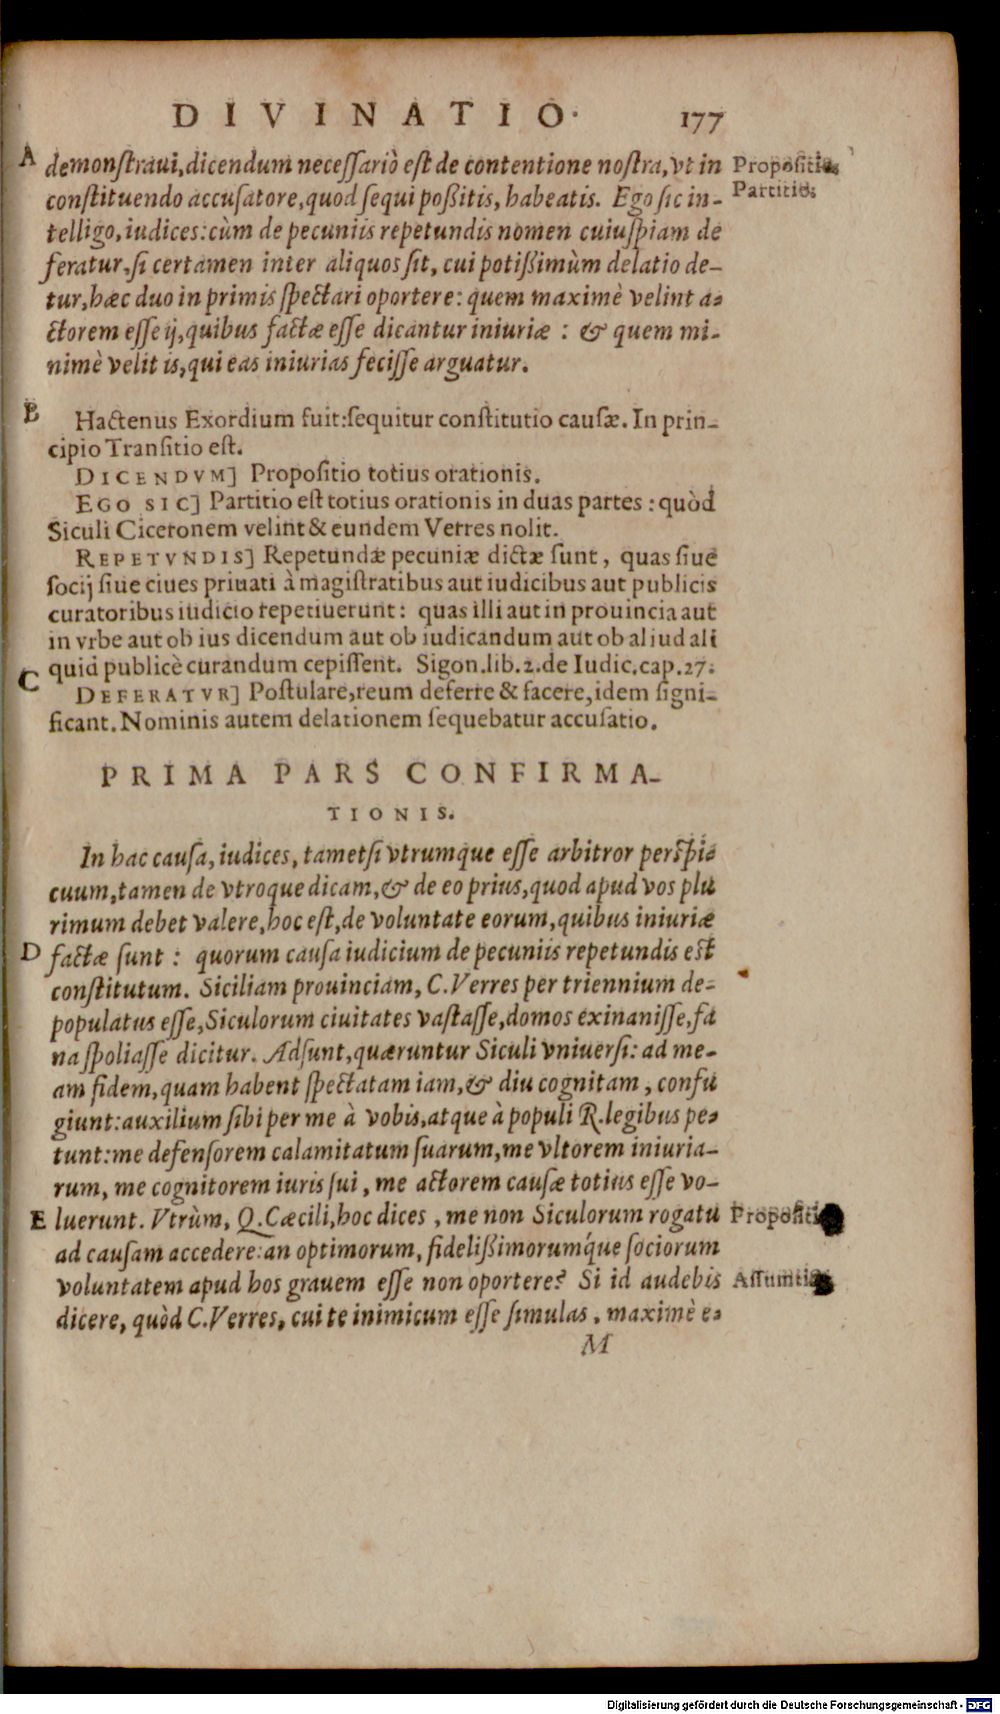 DIVINATIO. 177
A demonstraui, dicendum necessariò est de contentione nostra, vt in Propositio.
constituendo accusatore, quod sequi poßitis, habeatis. Ego sic in- Partitio.
telligo, iudices: cùm de pecuniis repetundis nomen cuiuspiam de
feratur, si certamen inter aliquos sit, cui potißimùm delatio de-
tur, hæc duo in primis spectari oportere: quem maximè velint a-
ctorem esse ij, quibus factæ esse dicantur iniuriæ : & quem mi-
nimè velit is, qui eas iniurias fecisse arguatur.
B Hactenus Exordium fuit: sequitur constitutio causæ. In prin-
cipio Transitio est.
DICENDVM] Propositio totius orationis.
EGO SIC] Partitio est totius orationis in duas partes : quòd
Siculi Ciceronem velint & eundem Verres nolit.
REPETVNDIS] Repetundæ pecuniæ dictæ sunt, quas siue
socij siue ciues priuati à magistratibus aut iudicibus aut publicis
curatoribus iudicio repetiuerunt: quas illi aut in prouincia aut
in vrbe aut ob ius dicendum aut ob iudicandum aut ob aliud ali
quid publicè curandum cepissent. Sigon. lib. 2. de Iudic. cap. 27.
C DEFERATVR] Postulare, reum deferre & facere, idem signi-
ficant. Nominis autem delationem sequebatur accusatio.
PRIMA PARS CONFIRMA-
TIONIS.
In hac causa, iudices, tametsi vtrumque esse arbitror perspi-
cuum, tamen de vtroque dicam, & de eo prius, quod apud vos plu
rimum debet valere, hoc est, de voluntate eorum, quibus iniuriæ
D factæ sunt : quorum causa iudicium de pecuniis repetundis est
constitutum. Siciliam prouinciam, C. Verres per triennium de-
populatus esse, Siculorum ciuitates vastasse, domos exinanisse, fa
na spoliasse dicitur. Adsunt, quæruntur Siculi vniuersi: ad me-
am fidem, quam habent spectatam iam, & diu cognitam, confu
giunt: auxilium sibi per me à vobis, atque à populi R. legibus pe-
tunt: me defensorem calamitatum suarum, me vltorem iniuria-
rum, me cognitorem iuris sui, me actorem causæ totius esse vo-
E luerunt. Vtrùm, Q. Cæcili, hoc dices, me non Siculorum rogatu
ad causam accedere: an optimorum, fidelißimorumq́ue sociorum
voluntatem apud hos grauem esse non oportere? Si id audebis
dicere, quòd C. Verres, cui te inimicum esse simulas, maximè e-
M
Digitalisierung gefördert durch die Deutsche Forschungsgemeinschaft - DFG